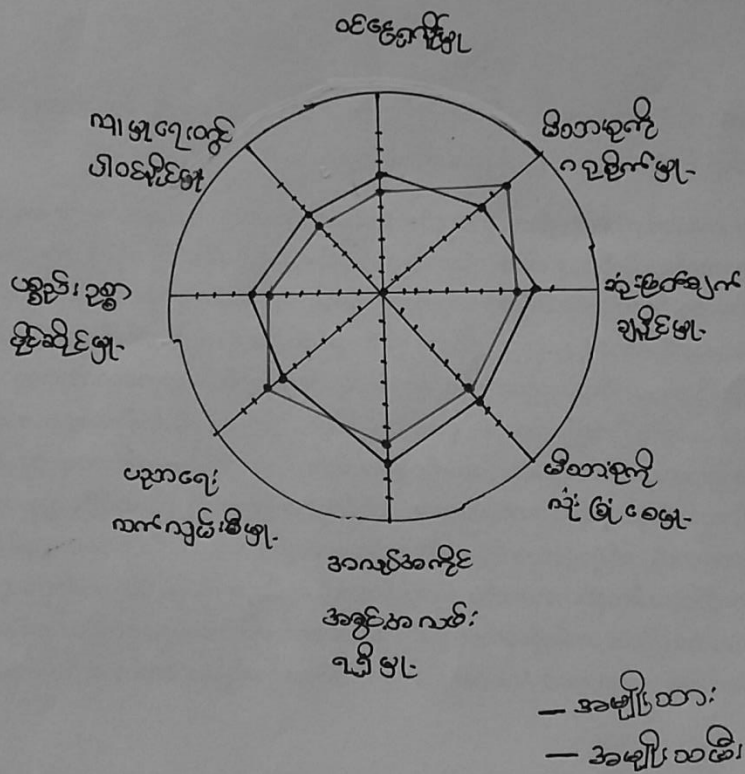 ဝင်ငွေရှာနိုင်မှု
မိသားစုကို
ဂရုစိုက်မှု
ဆုံးဖြတ်ချက်
ချနိုင်မှု
မိသားစုကို
လုံခြုံစေမှု
အလုပ်အကိုင်
အခွင့်အလမ်း
ရရှိမှု
ပညာရေး
လက်လှမ်းမီမှု
ပစ္စည်းဥစ္စာ
ပိုင်ဆိုင်မှု
ကျား၊မရေးရာတွင်
ပါဝင်နိုင်မှု
— အမျိုးသား
— အမျိုးသမီး